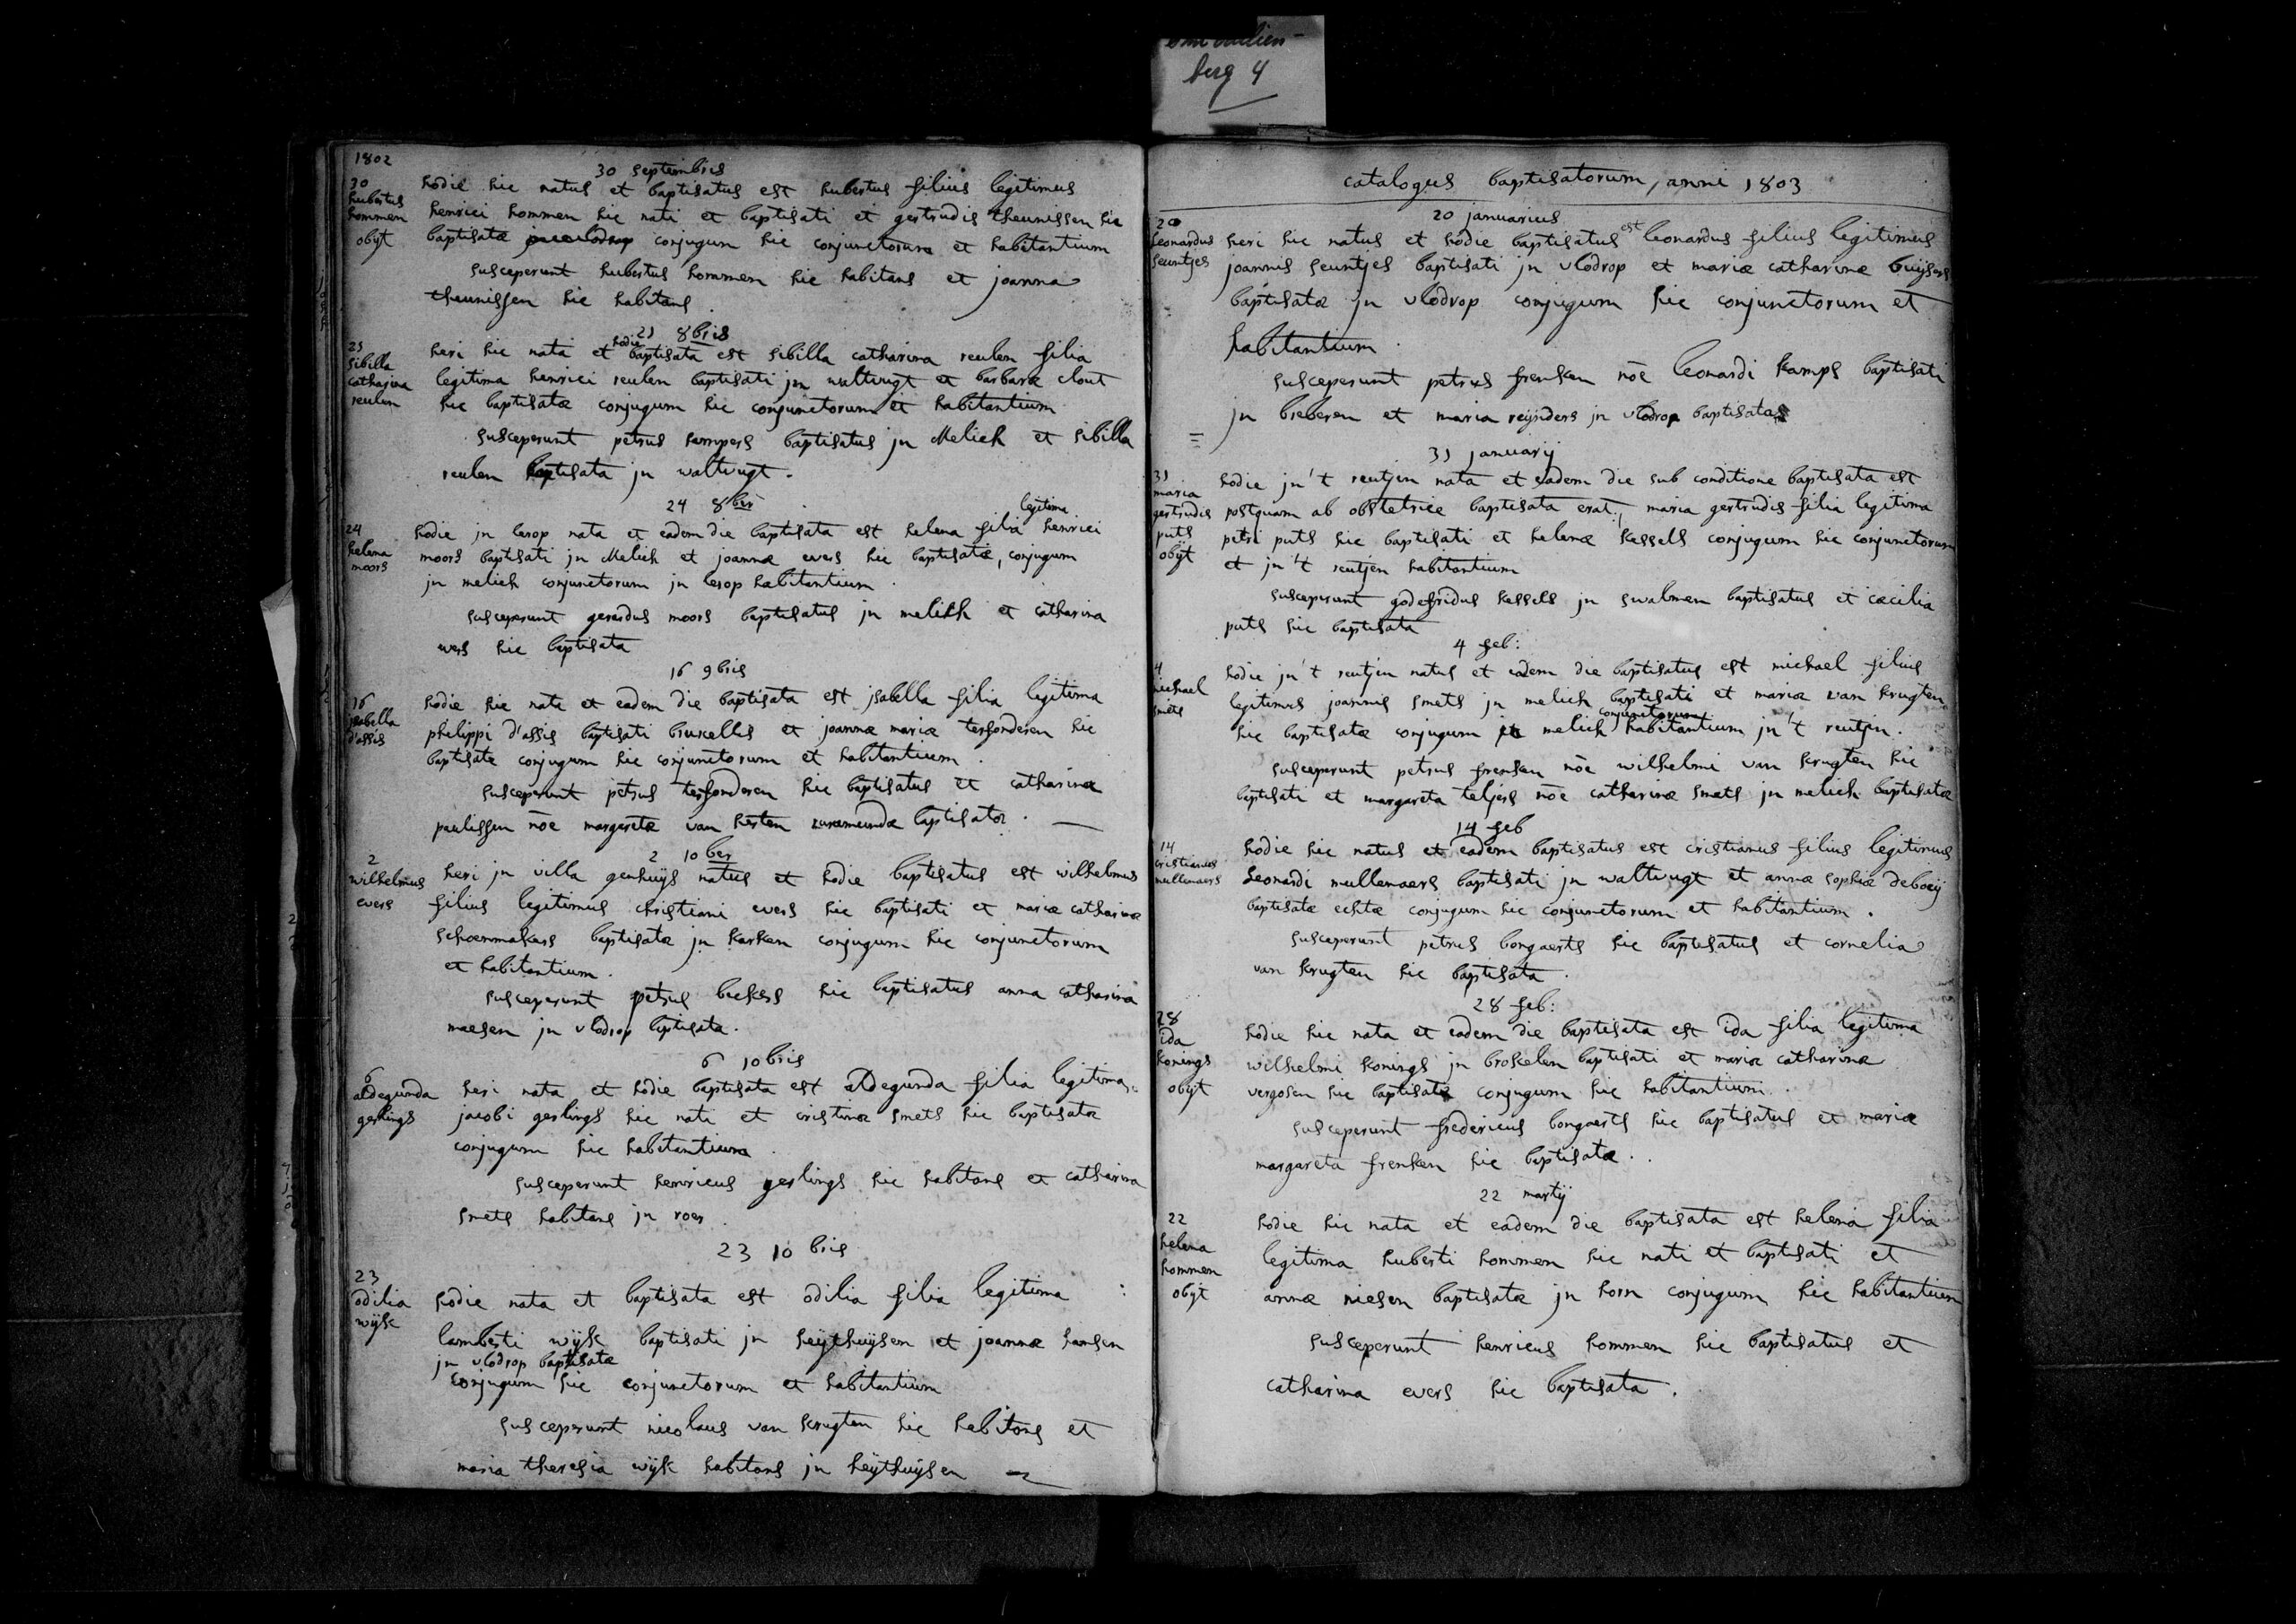 berg 4
1802
30 septembris
30
hubertus
hommen
obijt
hodie hic natus et baptisatus est hubertus filius legitimus
henrici hommen hic nati et baptisati et gertrudis theunissen hic
baptisatæ conjugum hic conjunctorum et habitantium
susceperunt hubertus hommen hic habitans et joanna
theunissen hic habitans
21 8bris
21
sibilla
catharina
reulen
heri hic nata et hodie baptisata est sibilla catharina reulen filia
legitima henrici reulen baptisati jn waltrugt et barbaræ clout
hic baptisatæ conjugum hic conjunctorum et habitantium
susceperunt petrus kampers baptisatus jn Melick et sibilla
reulen baptisata jn waltrugt.
24 8bris
24
helena
moors
hodie jn lerop nata et eadem die baptisata est helena filia legitima henrici
moors baptisati jn Melick et joannæ evers hic baptisatæ, conjugum
jn melick conjunctorum jn lerop habitantium.
susceperunt gerardus moors baptisatus jn melick et catharina
evers hic baptisata
16 9bris
16
jsabella
d'assis
hodie hic nata et eadem die baptisata est jsabella filia legitima
philippi d'assis baptisati bruxellis et joannæ mariæ terfonderen hic
baptisatæ conjugum hic conjunctorum et habitantium.
susceperunt petrus terfonderen hic baptisatus et catharina
paulissen nōe margaretæ van kesten ruræmundæ baptisatæ.
2 10ber
2
wilhelmus
evers
heri jn villa genhuijs natus et hodie baptisatus est wilhelmus
filius legitimus christiani evers hic baptisati et mariæ catharinæ
schoenmakers baptisatæ jn karken conjugum hic conjunctorum
et habitantium.
susceperunt petrus beckers hic baptisatus anna catharina
maesen jn vlodrop baptisata.
6 10bris
6
aldegunda
gerlings
heri nata et hodie baptisata est aldegunda filia legitima
jacobi gerlings hic nati et cristinæ smets hic baptisatæ
conjugum hic habitantium.
susceperunt henricus gerlings hic habitans et catharina
smets habitans jn roer.
23 10bris
23
odilia
wijk
hodie nata et baptisata est odilia filia legitima
lamberti wijk baptisati jn heijthuijsen et joannæ hansen
jn vlodrop baptisatæ
conjugum hic conjunctorum et habitantium
susceperunt nicolaus van krugten hic habitans et
maria theresia wijk habitans jn heijthuijsen
catalogus baptisatorum, anni 1803
20 januarius
20
leonardus
seuntjes
heri hic natus et hodie baptisatus est leonardus filius legitimus
joannis seuntjes baptisati jn vlodrop et mariæ catharinæ buijsers
baptisatæ jn vlodrop conjugum hic conjunctorum et
habitantium.
susceperunt petrus frenken nōe leonardi kamps baptisati
jn breberen et maria reijnders jn vlodrop baptisata
31 januarij
31
maria
gertrudis
puts
obijt
hodie jn't reutjen nata et eadem die sub conditione baptisata est
postquam ab obstetrice baptisata erat, maria gertrudis filia legitima
petri puts hic baptisati et helenæ kessels conjugum hic conjunctorum
et jn't reutjen habitantium
susceperunt godefridus kessels jn swalmen baptisatus et cæcilia
puts hic baptisata
4 feb:
4
michael
smets
hodie jn't reutjen natus et eadem die baptisatus est michael filius
legitimus joannis smets jn melick baptisati et mariæ van krugten
hic baptisatæ conjugum jn melick conjunctorum habitantium jn't reutjen.
susceperunt petrus frenken nōe wilhelmi van krugten hic
baptisati et margareta teljers nōe catharinæ smets jn melick baptisatæ
14 feb
14
cristianus
mullenaers
hodie hic natus et eadem baptisatus est cristianus filius legitimus
Leonardi mullenaers baptisati jn waltrugt et annæ sophiæ deboeij
baptisatæ echtæ conjugum hic conjunctorum et habitantium.
susceperunt petrus bongaerts hic baptisatus et cornelia
van krugten hic baptisata.
28 feb:
28
ida
konings
obijt
hodie hic nata et eadem die baptisata est ida filia legitima
wilhelmi konings jn brokelen baptisati et mariæ catharinæ
vergosen hic baptisatæ conjugum hic habitantium.
susceperunt fredericus bongaerts hic baptisatus et mariæ
margareta frenken hic baptisatæ.
22 martij
22
helena
hommen
obijt
hodie hic nata et eadem die baptisata est helena filia
legitima huberti hommen hic nati et baptisati et
annæ niesen baptisatæ jn horn conjugum hic habitantium
susceperunt henricus hommen hic baptisatus et
catharina evers hic baptisata.